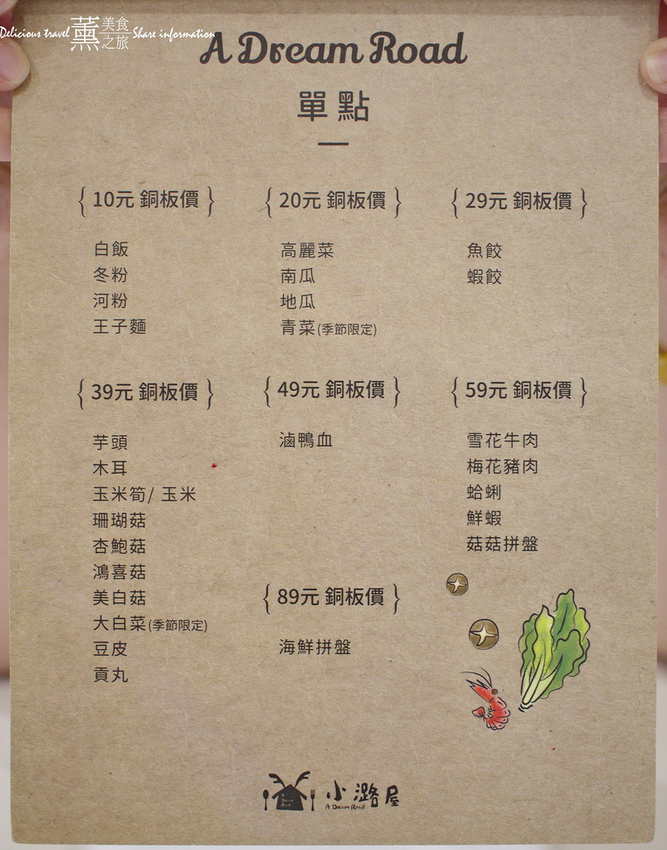 Delicious travel 薰 美食之旅 Share information
A Dream Road
單點
{ 10元 銅板價 }
白飯
冬粉
河粉
王子麵
{ 20元 銅板價 }
高麗菜
南瓜
地瓜
青菜(季節限定)
{ 29元 銅板價 }
魚餃
蝦餃
{ 39元 銅板價 }
芋頭
木耳
玉米筍/ 玉米
珊瑚菇
杏鮑菇
鴻喜菇
美白菇
大白菜(季節限定)
豆皮
貢丸
{ 49元 銅板價 }
滷鴨血
{ 59元 銅板價 }
雪花牛肉
梅花豬肉
蛤蜊
鮮蝦
菇菇拼盤
{ 89元 銅板價 }
海鮮拼盤
小潞屋
A Dream Road